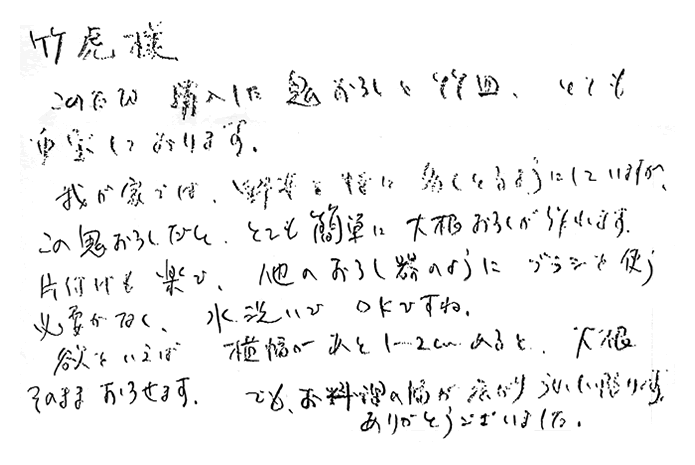 竹虎様
このたび購入した鬼おろしと竹皿、とても
重宝しております。
我が家では、野菜を特に多くとるようにしていますが、
この鬼おろしだと、とても簡単に大根おろしが作れます。
片付けも楽で、他のおろし器のようにブラシを使う
必要がなく、水洗いでOKですね。
欲をいえば横幅があと1~2cmあると、大根
そのままおろせます。でも、お料理の幅が広がりうれしい限りです。
ありがとうございました。